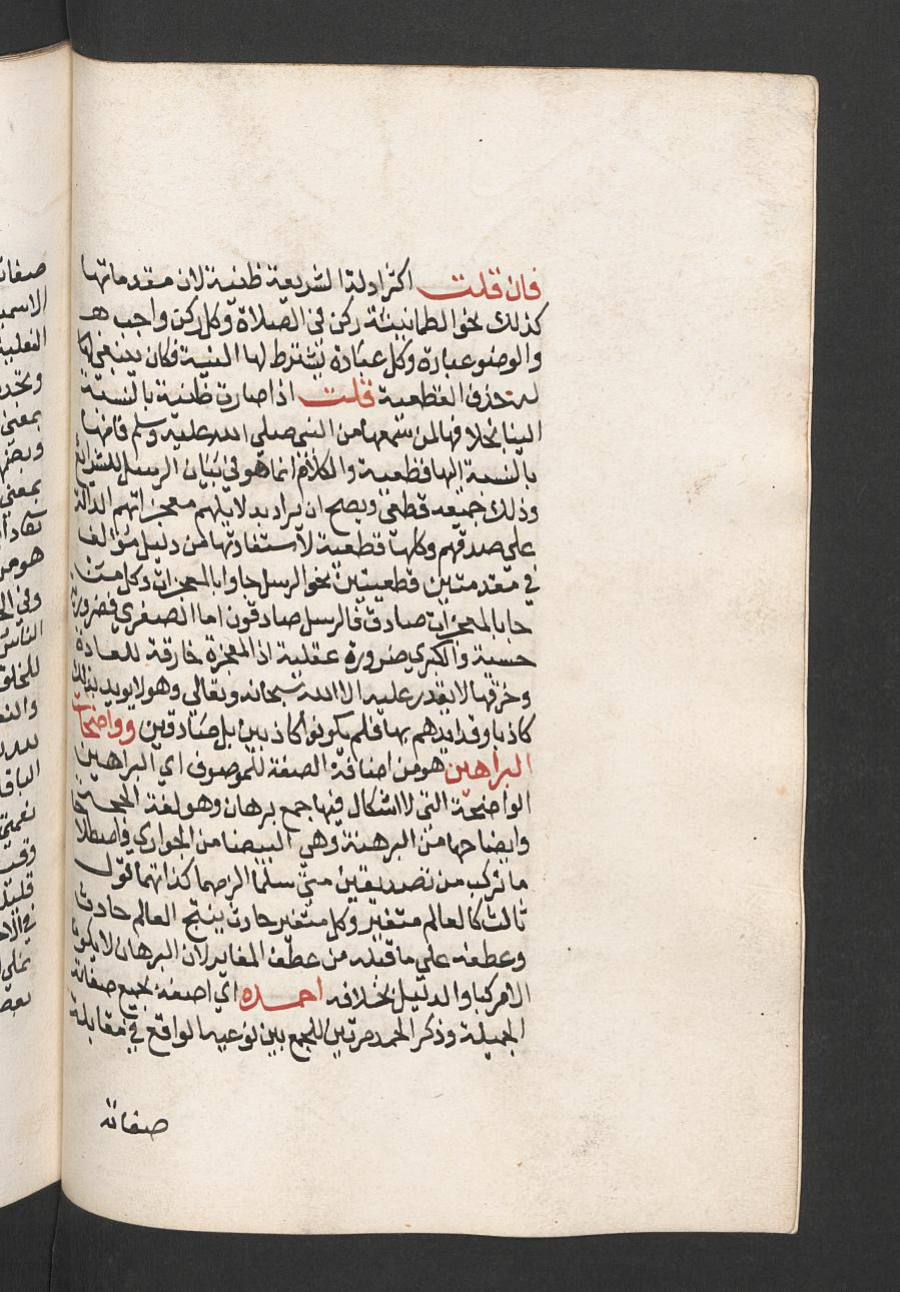 فان قلت اكثر ادلة الشريعة ظنية لان مقدماتها
كذلك نحو الطمانينة ركن في الصلاة وكل ركن واجب هـ
والوضو عبادة وكل عبادة يشترط لها النية فكان ينبغي
حذف القطعية قلت اذا صارت ظنية بالنسبة
الينا بخلافها لمن سمعها من النبي صلي الله عليه وسلم فانها
بالنسبة اليها قطعية والكلام انما هو في بيان الرسل للشرائع
وذلك جميعه قطعي ويصح ان يراد بدلايلهم معجزاتهم الدالة
علي صدقهم وكلها قطعية لاستفادتها من دليل مؤلف
في مقدمتين قطعيتين نحو الرسل جاوا بالمعجزات وكل من
جا بالمعجزات صادق فالرسل صادقون اما الصغري فضرورية
حسية والكبري ضرورة عقلية اذ المعجزة خارقة للعادة
وخرقها لا يقدر عليه الا الله سبحانه وتعالي وهو لا يويد بذلك
كاذبا وقد ايدهم بها فلم يكونوا كاذبين بل صادقين وواضحات
البراهين هو من اضافة الصفة للموصوف اي البراهين
الواضحة التي لا اشكال فيها جمع برهان وهو لغة الحجة
وايضاحها من البرهنة وهي البيضا من الجواري واصطلاحا
ما تركب من تصديقين متي سلما لزمهما لذاتهما قول
ثالث كالعالم متغير وكل متغير حادث ينتج العالم حادث
وعطفه علي ما قبله من عطف المغاير لان البرهان لا يكون
الا مركبا والدليل بخلافه احمده اي اصفه بجميع صفاته
الجميلة وذكر الحمد مرتين للجمع بين نوعيه الواقع في مقابلة
صفاته